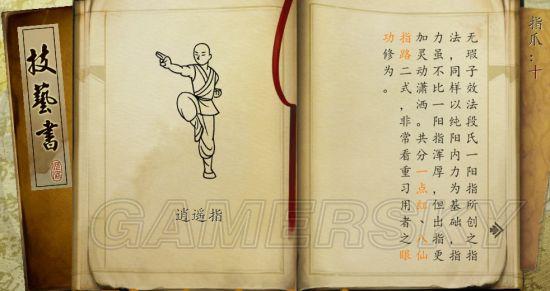 指爪：十
无瑕子效法段氏一阳指所创之指
法，同样以纯阳内力为基础，指
力虽不比一阳指浑厚，但出指更
加灵动潇洒。共分一点红、八仙
指路二式，非常看重习用者之眼
功修为。
逍遥指
技藝書
GAMERSKY